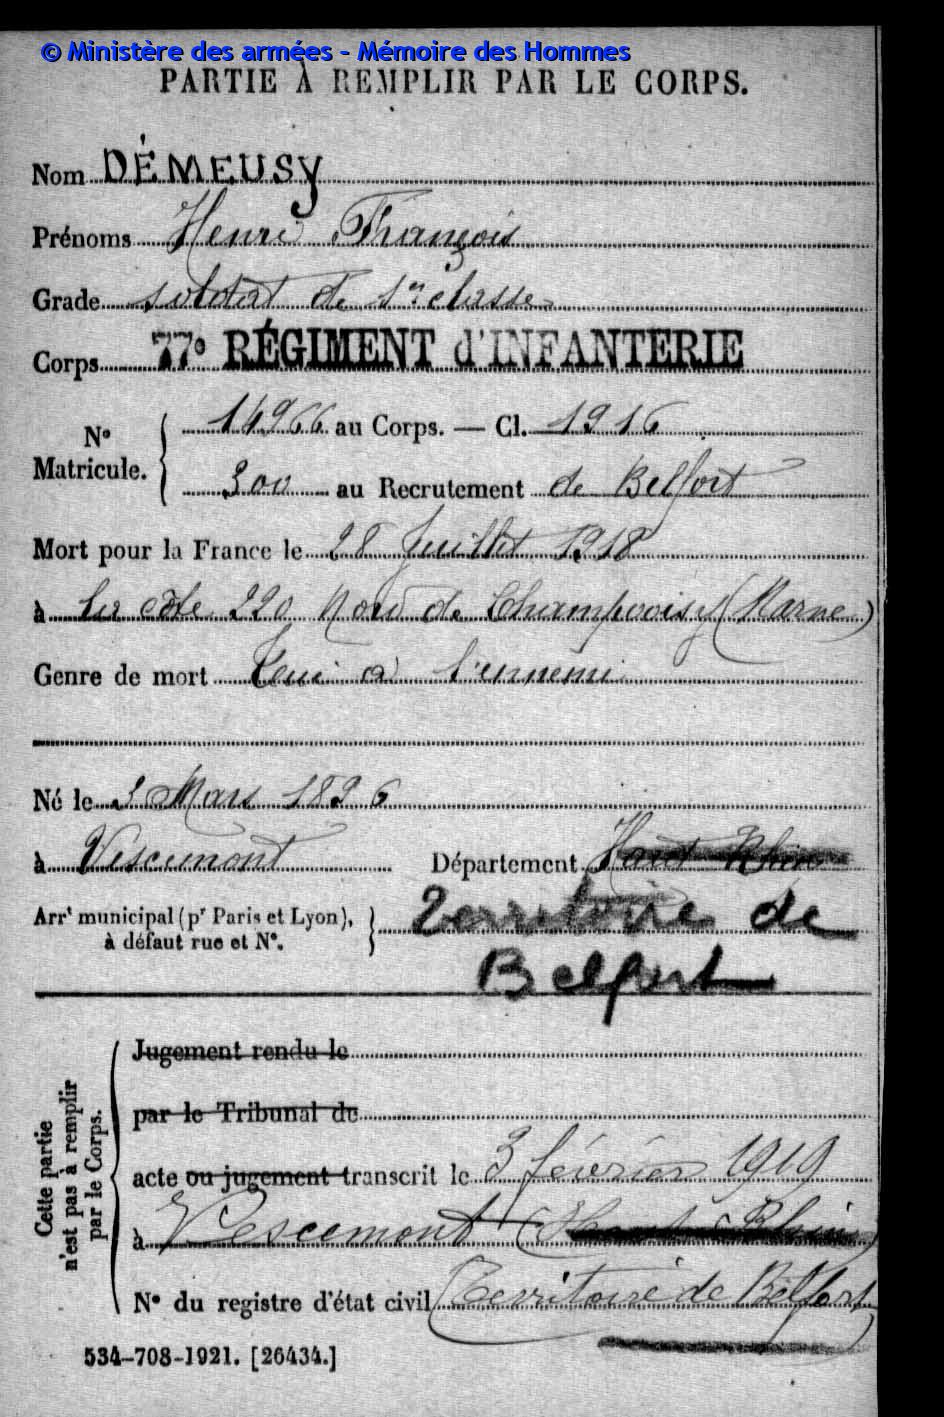 © Ministère des armées - Mémoire des Hommes
PARTIE À REMPLIR PAR LE CORPS.
Nom DÉMEUSY
Prénoms Henri François
Grade soldat de 1re classe
Corps 77e RÉGIMENT d'INFANTERIE
No Matricule. { 14966 au Corps. — Cl. 1916
300 au Recrutement de Belfort
Mort pour la France le 28 Juillet 1918
à la côte 220 Nord de Champvoisy (Marne)
Genre de mort Tué à l'ennemi
Né le 3 Mars 1896
à Vescemont Département Haut Rhin
Arrt municipal (pr Paris et Lyon), à défaut rue et No. } Territoire de
Belfort
Cette partie n'est pas à remplir par le Corps.
Jugement rendu le
par le Tribunal de
acte ou jugement transcrit le 3 février 1919
à Vescemont (Haut Rhin)
No du registre d'état civil (Territoire de Belfort)
534-708-1921. [26434.]